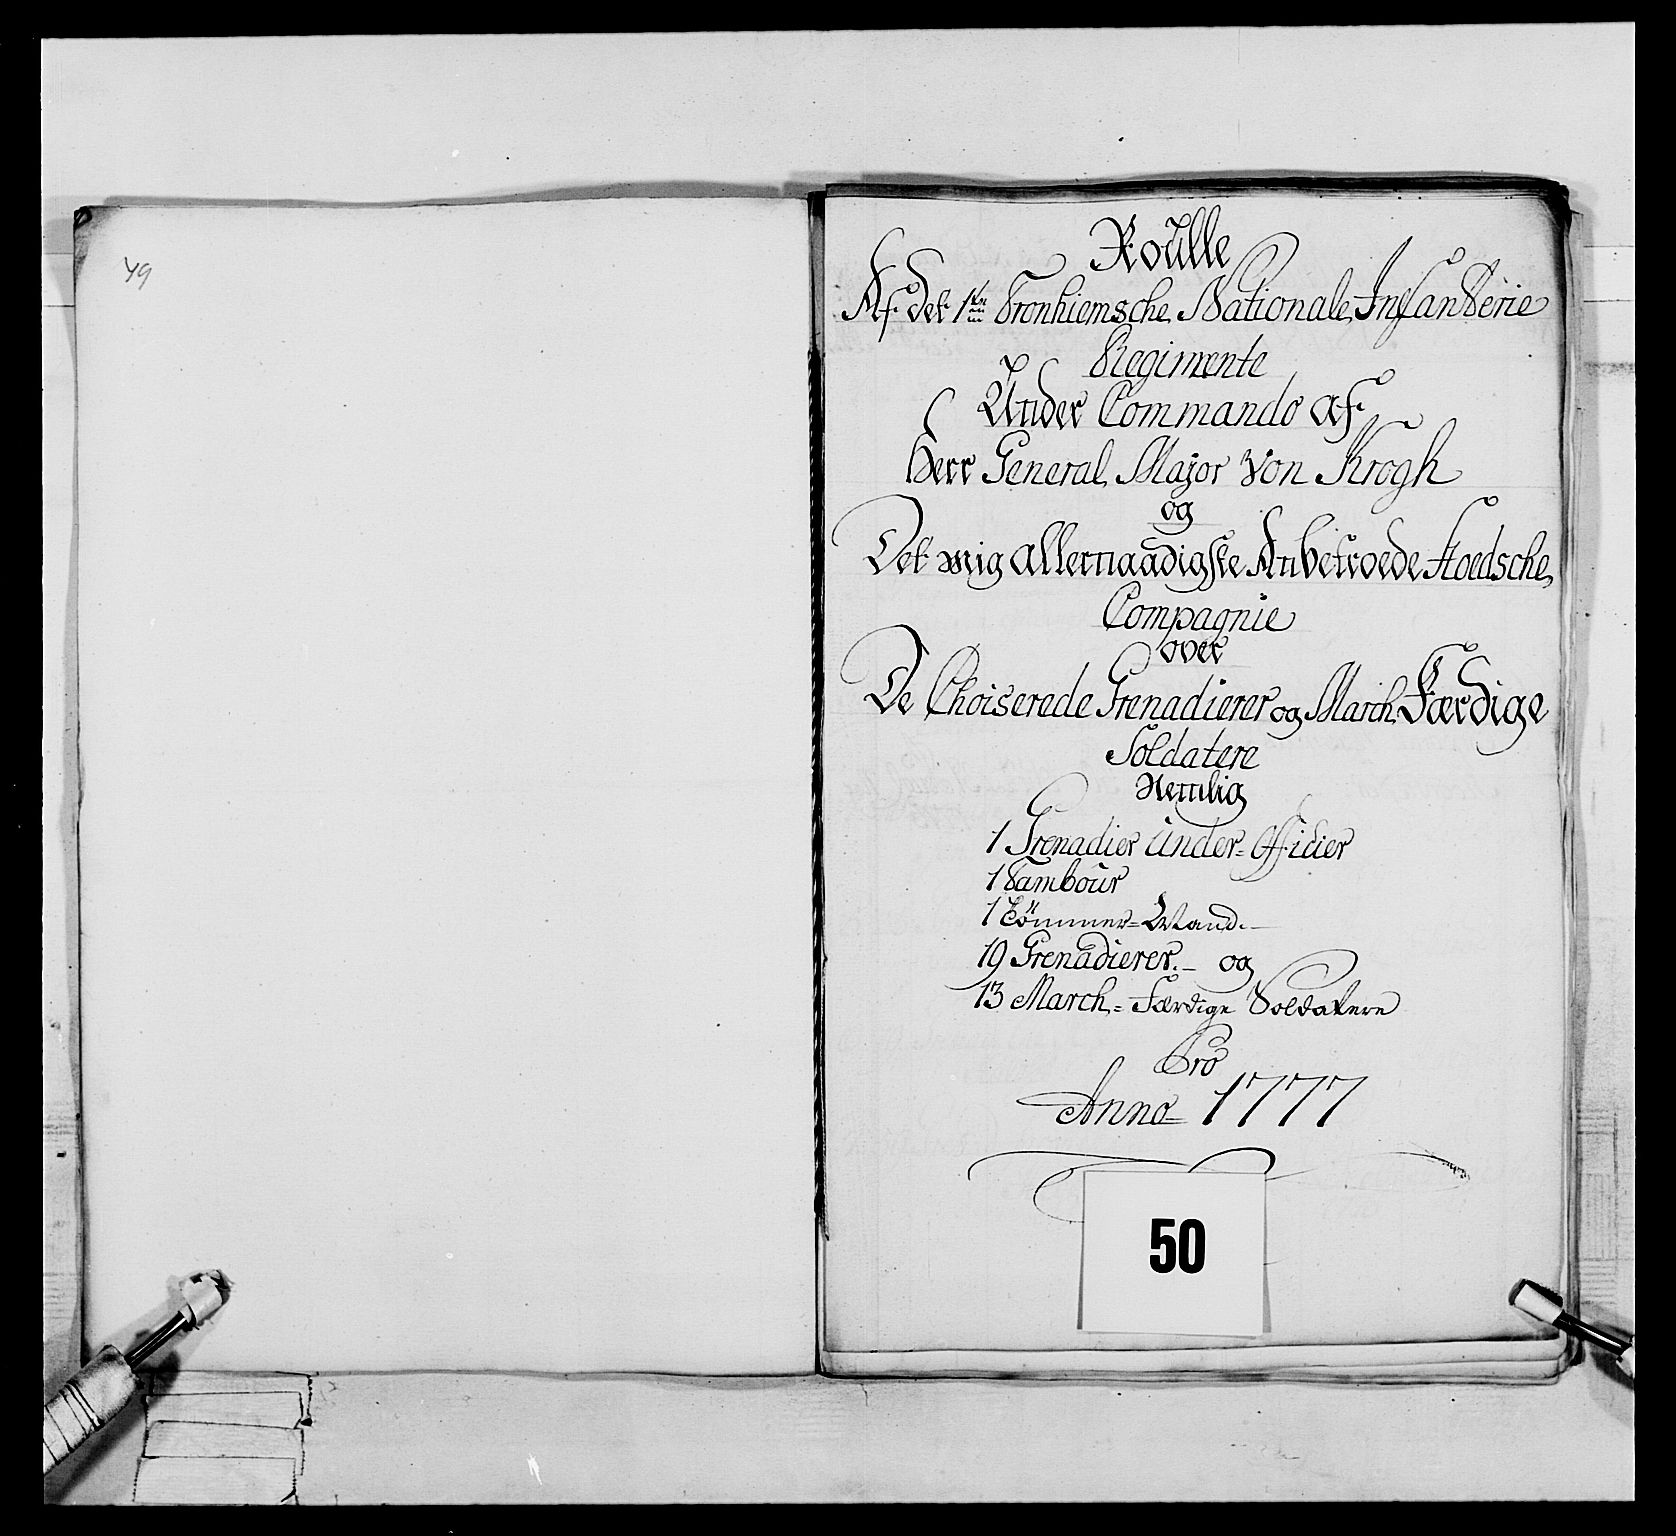 49
Roulle
Af det 1ste Tronhiemsche Nationale Infanterie
Regimente
Under Commando af
Herr General Major Von Krogh
og
Det mig allernaadigste Anbetroede Stoedsche
Compagnie
over
De Choiserede Grenadierer og March Færdige
Soldatere
Nemlig
1 Grenadier Under-Officier
1 Tambour
1 Tömmer-Mand.
19 Grenadierer.- og
13 March,- Færdige Soldatere
Pro
Anno 1777
50